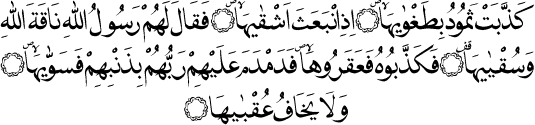 كَذَّبَتْ ثَمُودُ بِطَغْوٰيهَاۙ۝ اِذِ انْبَعَثَ اَشْقٰيهَاۙ۝ فَقَالَ لَهُمْ رَسُولُ اللهِ نَاقَةَ اللهِ
وَسُقْيٰيهَاۜ۝ فَكَذَّبُوهُ فَعَقَرُوهَاۙ فَدَمْدَمَ عَلَيْهِمْ رَبُّهُمْ بِذَنْبِهِمْ فَسَوّٰيهَاۙ۝
وَلَا يَخَافُ عُقْبٰيهَا۝